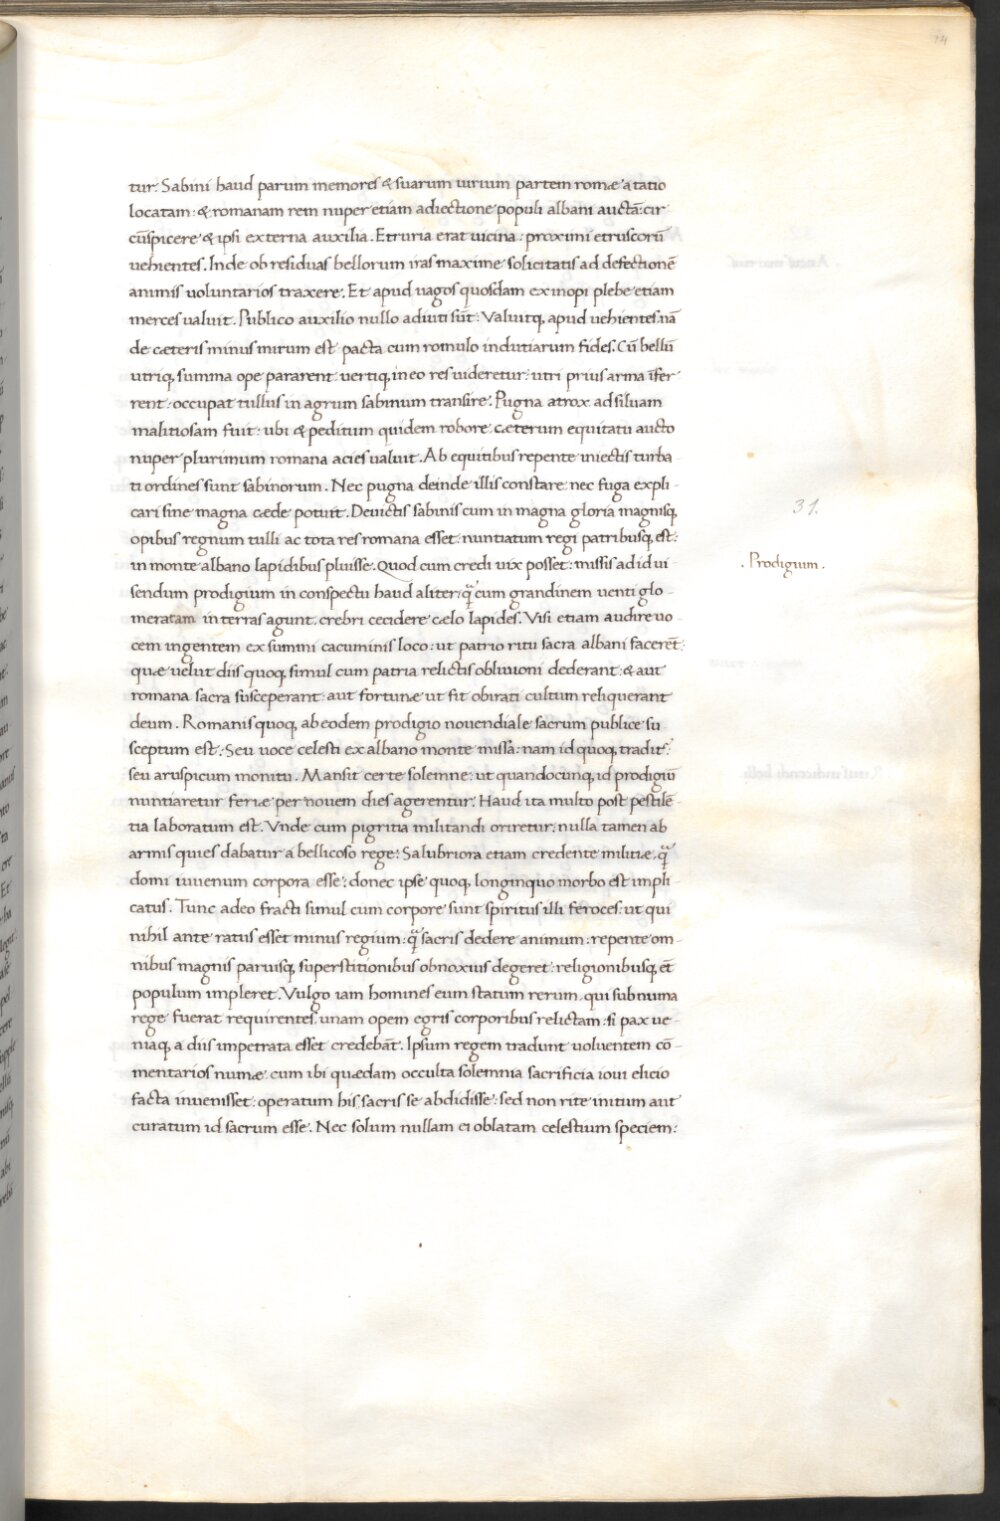 14
tur: Sabini haud parum memores & suarum uirium partem romæ a tatio
locatam: & romanam rem nuper etiam adiectione populi albani auctā: cir
cūspicere & ipsi externa auxilia. Etruria erat uicina: proximi etruscorū
uehientes. Inde ob residuas bellorum iras maxime solicitatis ad defectionē
animis uoluntarios traxere. Et apud uagos quosdam ex inopi plebe etiam
merces ualuit. Publico auxilio nullo adiuti sūt: Valuitq, apud uehientes. nā
de cæteris minus mirum est pacta cum romulo indutiarum fides. Cū bellū
utriq, summa ope pararent: uertiq, in eo res uideretur: utri prius arma īfer
rent: occupat tullus in agrum sabinum transire. Pugna atrox ad siluam
malitiosam fuit: ubi & peditum quidem robore: cæterum equitatu aucto
nuper plurimum romana acies ualuit. Ab equitibus repente iniectis turba
ti ordines sunt sabinorum. Nec pugna deinde illis constare: nec fuga expli-
cari sine magna cæde potuit. Deuictis sabinis cum in magna gloria magnisq,
opibus regnum tulli ac tota res romana esset: nuntiatum regi patribusq, est:
in monte albano lapidibus pluisse. Quod cum credi uix posset: missis ad id ui
sendum prodigium in conspectu haud aliter q̄ cum grandinem uenti glo-
meratam in terras agunt. crebri cecidere cælo lapides. Visi etiam audire uo
cem ingentem ex summi cacuminis loco: ut patrio ritu sacra albani facerēt:
quæ uelut diis quoq, simul cum patria relictis obliuioni dederant: & aut
romana sacra susceperant: aut fortunæ ut fit obirati cultum reliquerant
deum. Romanis quoq, ab eodem prodigio nouendiale sacrum publice su
sceptum est: Seu uoce celesti ex albano monte missa: nam id quoq, tradit:
seu aruspicum monitu. Mansit certe solemne: ut quandocunq, id prodigiū
nuntiaretur feriæ per nouem dies agerentur. Haud ita multo post pestilē-
tia laboratum est. Vnde cum pigritia militandi oriretur: nulla tamen ab
armis quies dabatur a bellicoso rege: Salubriora etiam credente militiæ. q̄
domi iuuenum corpora esse: donec ipse quoq, longinquo morbo est impli-
catus. Tunc adeo fracti simul cum corpore sunt spiritus illi feroces: ut qui
nihil ante ratus esset minus regium: q̄ sacris dedere animum: repente om-
nibus magnis paruisq, superstitionibus obnoxius degeret: religionibusq, et̄
populum impleret. Vulgo iam homines eum statum rerum. qui sub numa
rege fuerat requirentes. unam opem egris corporibus relictam: si pax ue-
niaq, a diis impetrata esset credebāt. Ipsum regem tradunt uoluentem cō-
mentarios numæ: cum ibi quædam occulta solemnia sacrificia ioui elicio
facta inuenisset: operatum his sacris se abdidisse: sed non rite initum aut
curatum id sacrum esse. Nec solum nullam ei oblatam celestium speciem:
31.
. Prodigium .